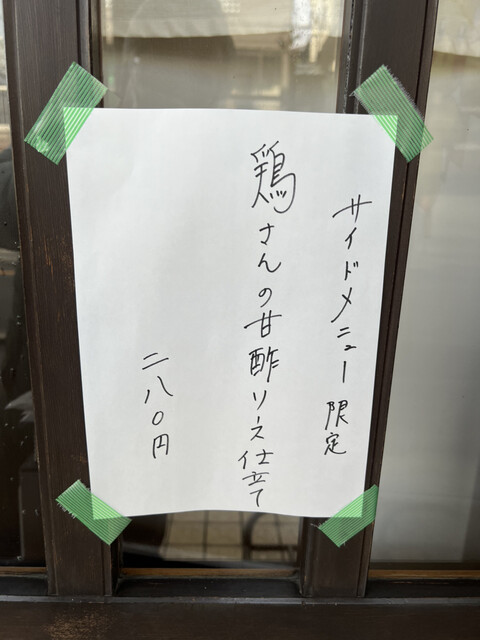 サイドメニュー限定
鶏さんの甘酢ソース仕立て
二八〇円